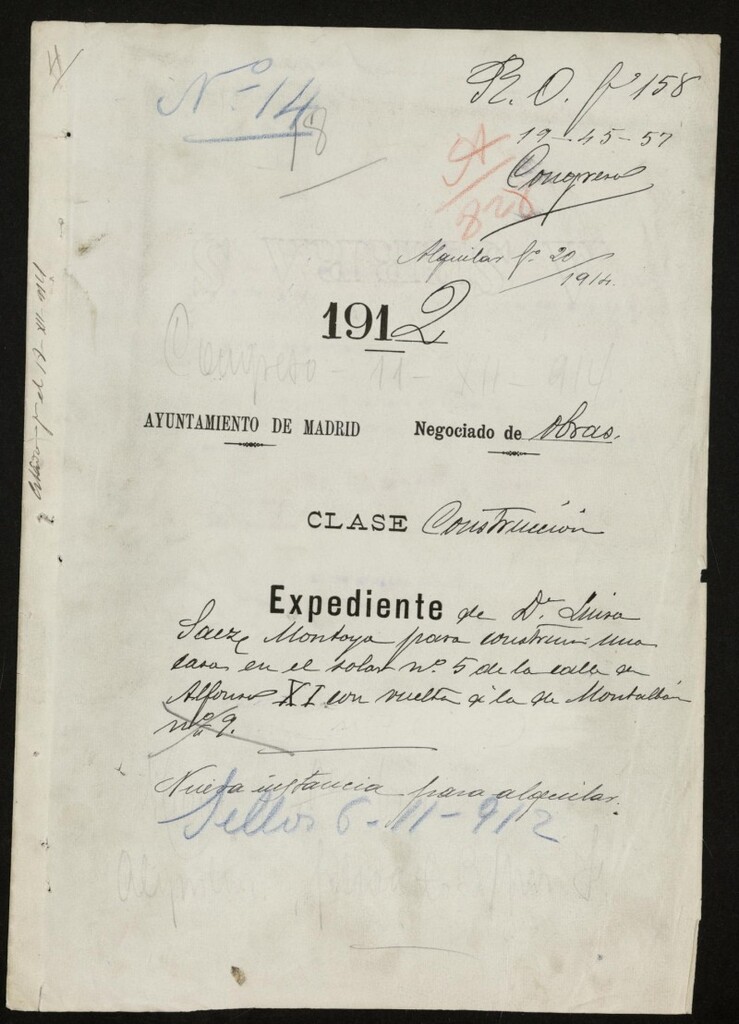 R. O. fº 158
Nº 14
8
19-45-57
Congreso
828
Alquilar fº 20
1914.
1912
Congreso - 11 - XII - 914
AYUNTAMIENTO DE MADRID
Negociado de Obras.
CLASE Construcción
Expediente de Dª Luisa
Saez Montoya para construir una
casa en el solar nº 5 de la calle de
Alfonso XI con vuelta á la de Montalbán
nº 9.
Nueva instancia para alquilar.
Sellos 6-11-912